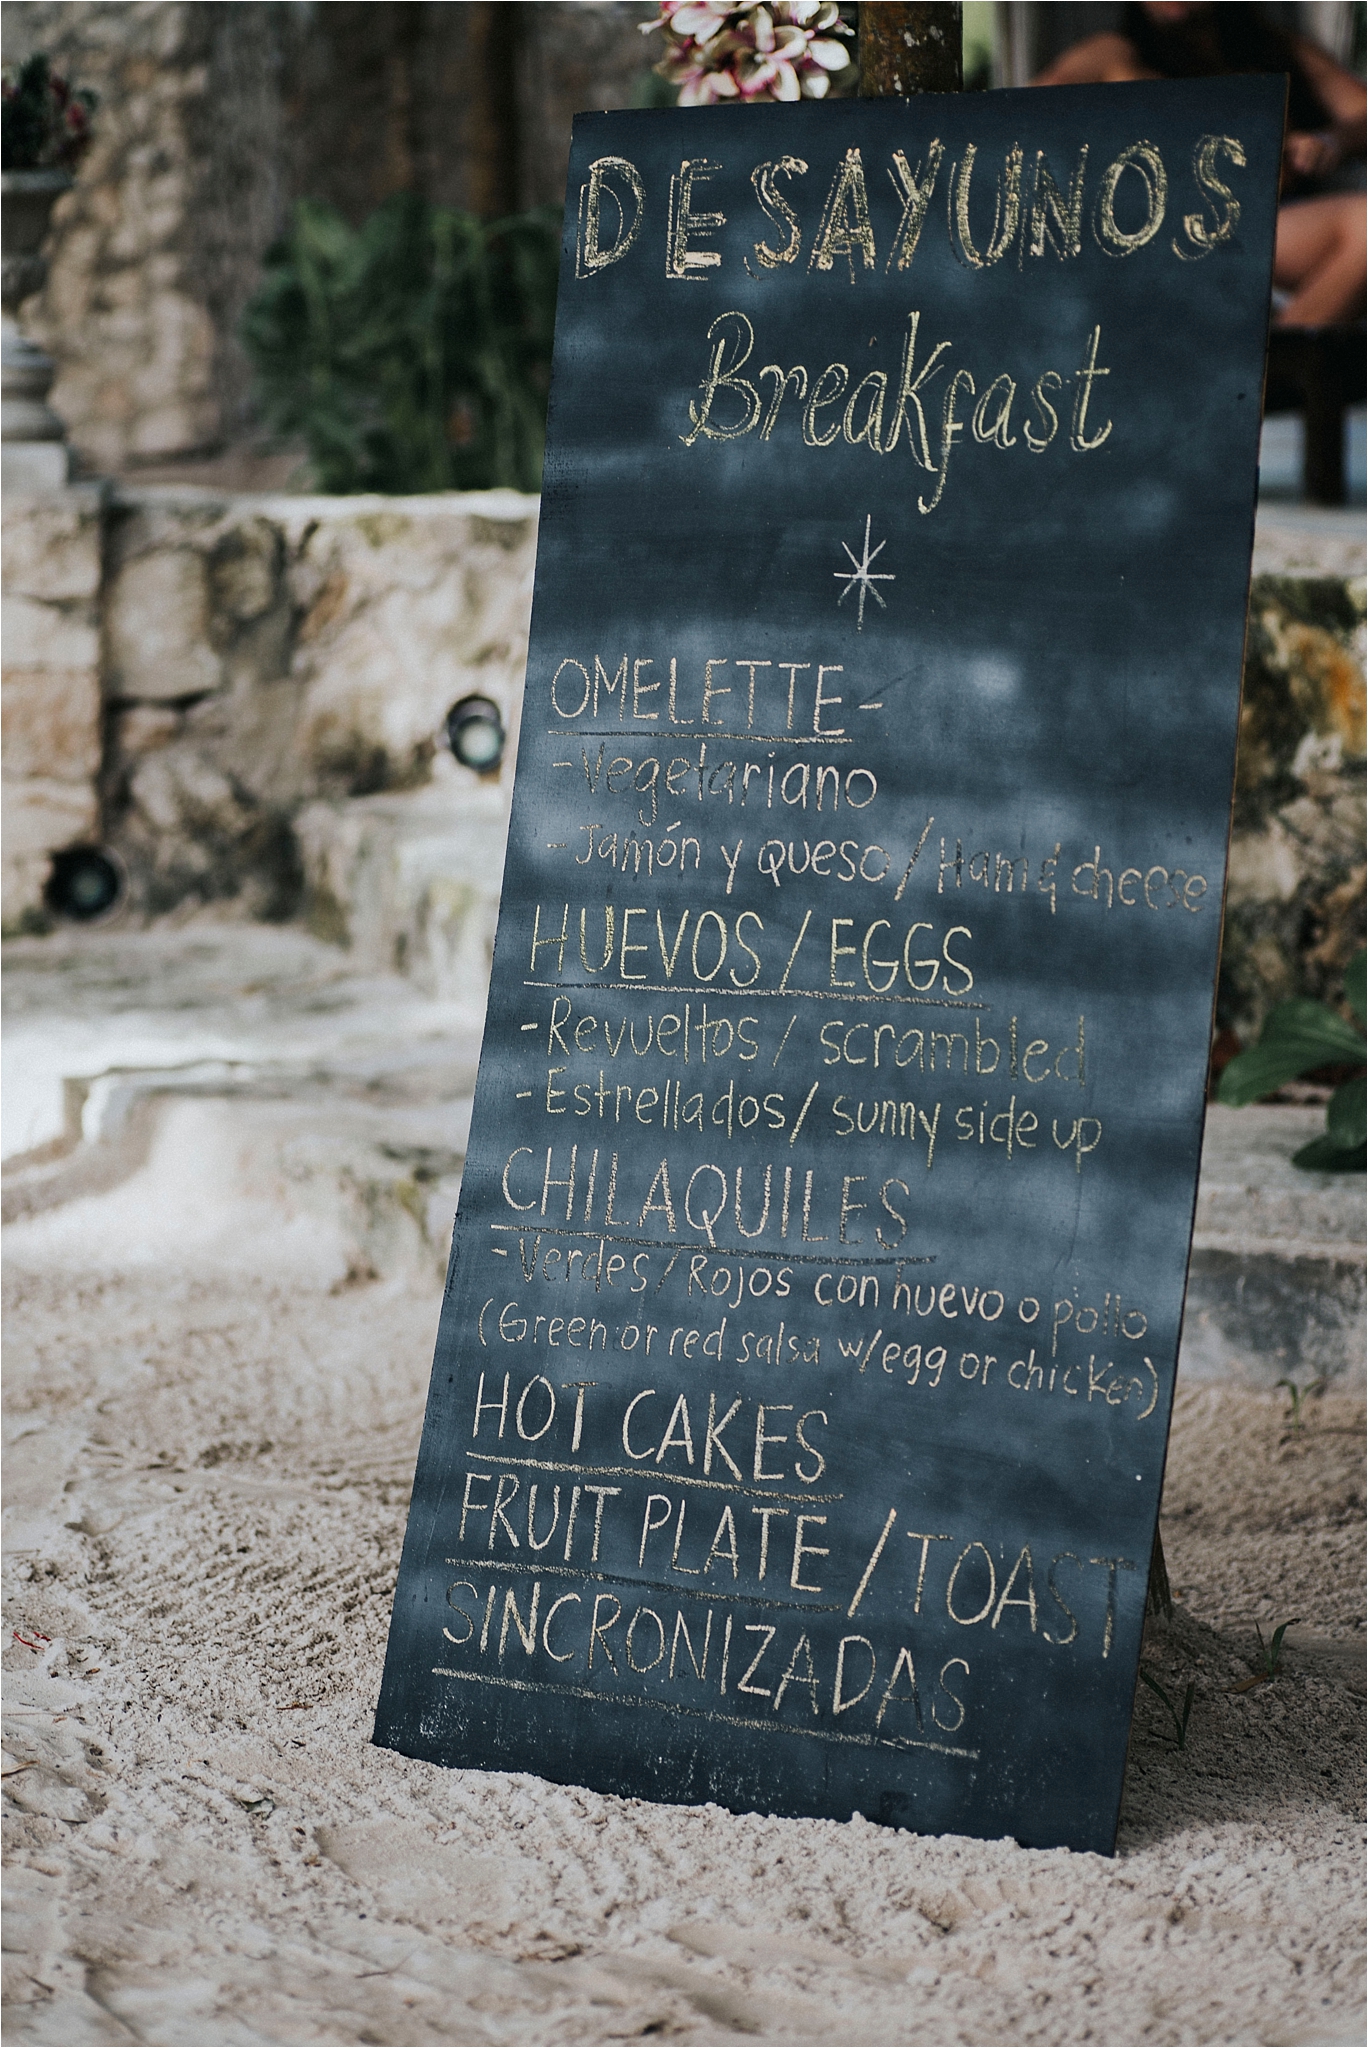 DESAYUNOS
Breakfast
OMELETTE-
-Vegetariano
-Jamón y queso / Ham & cheese
HUEVOS / EGGS
-Revueltos / scrambled
-Estrellados / sunny side up
CHILAQUILES
-Verdes / Rojos con huevo o pollo
(Green or red salsa w/egg or chicken)
HOT CAKES
FRUIT PLATE / TOAST
SINCRONIZADAS